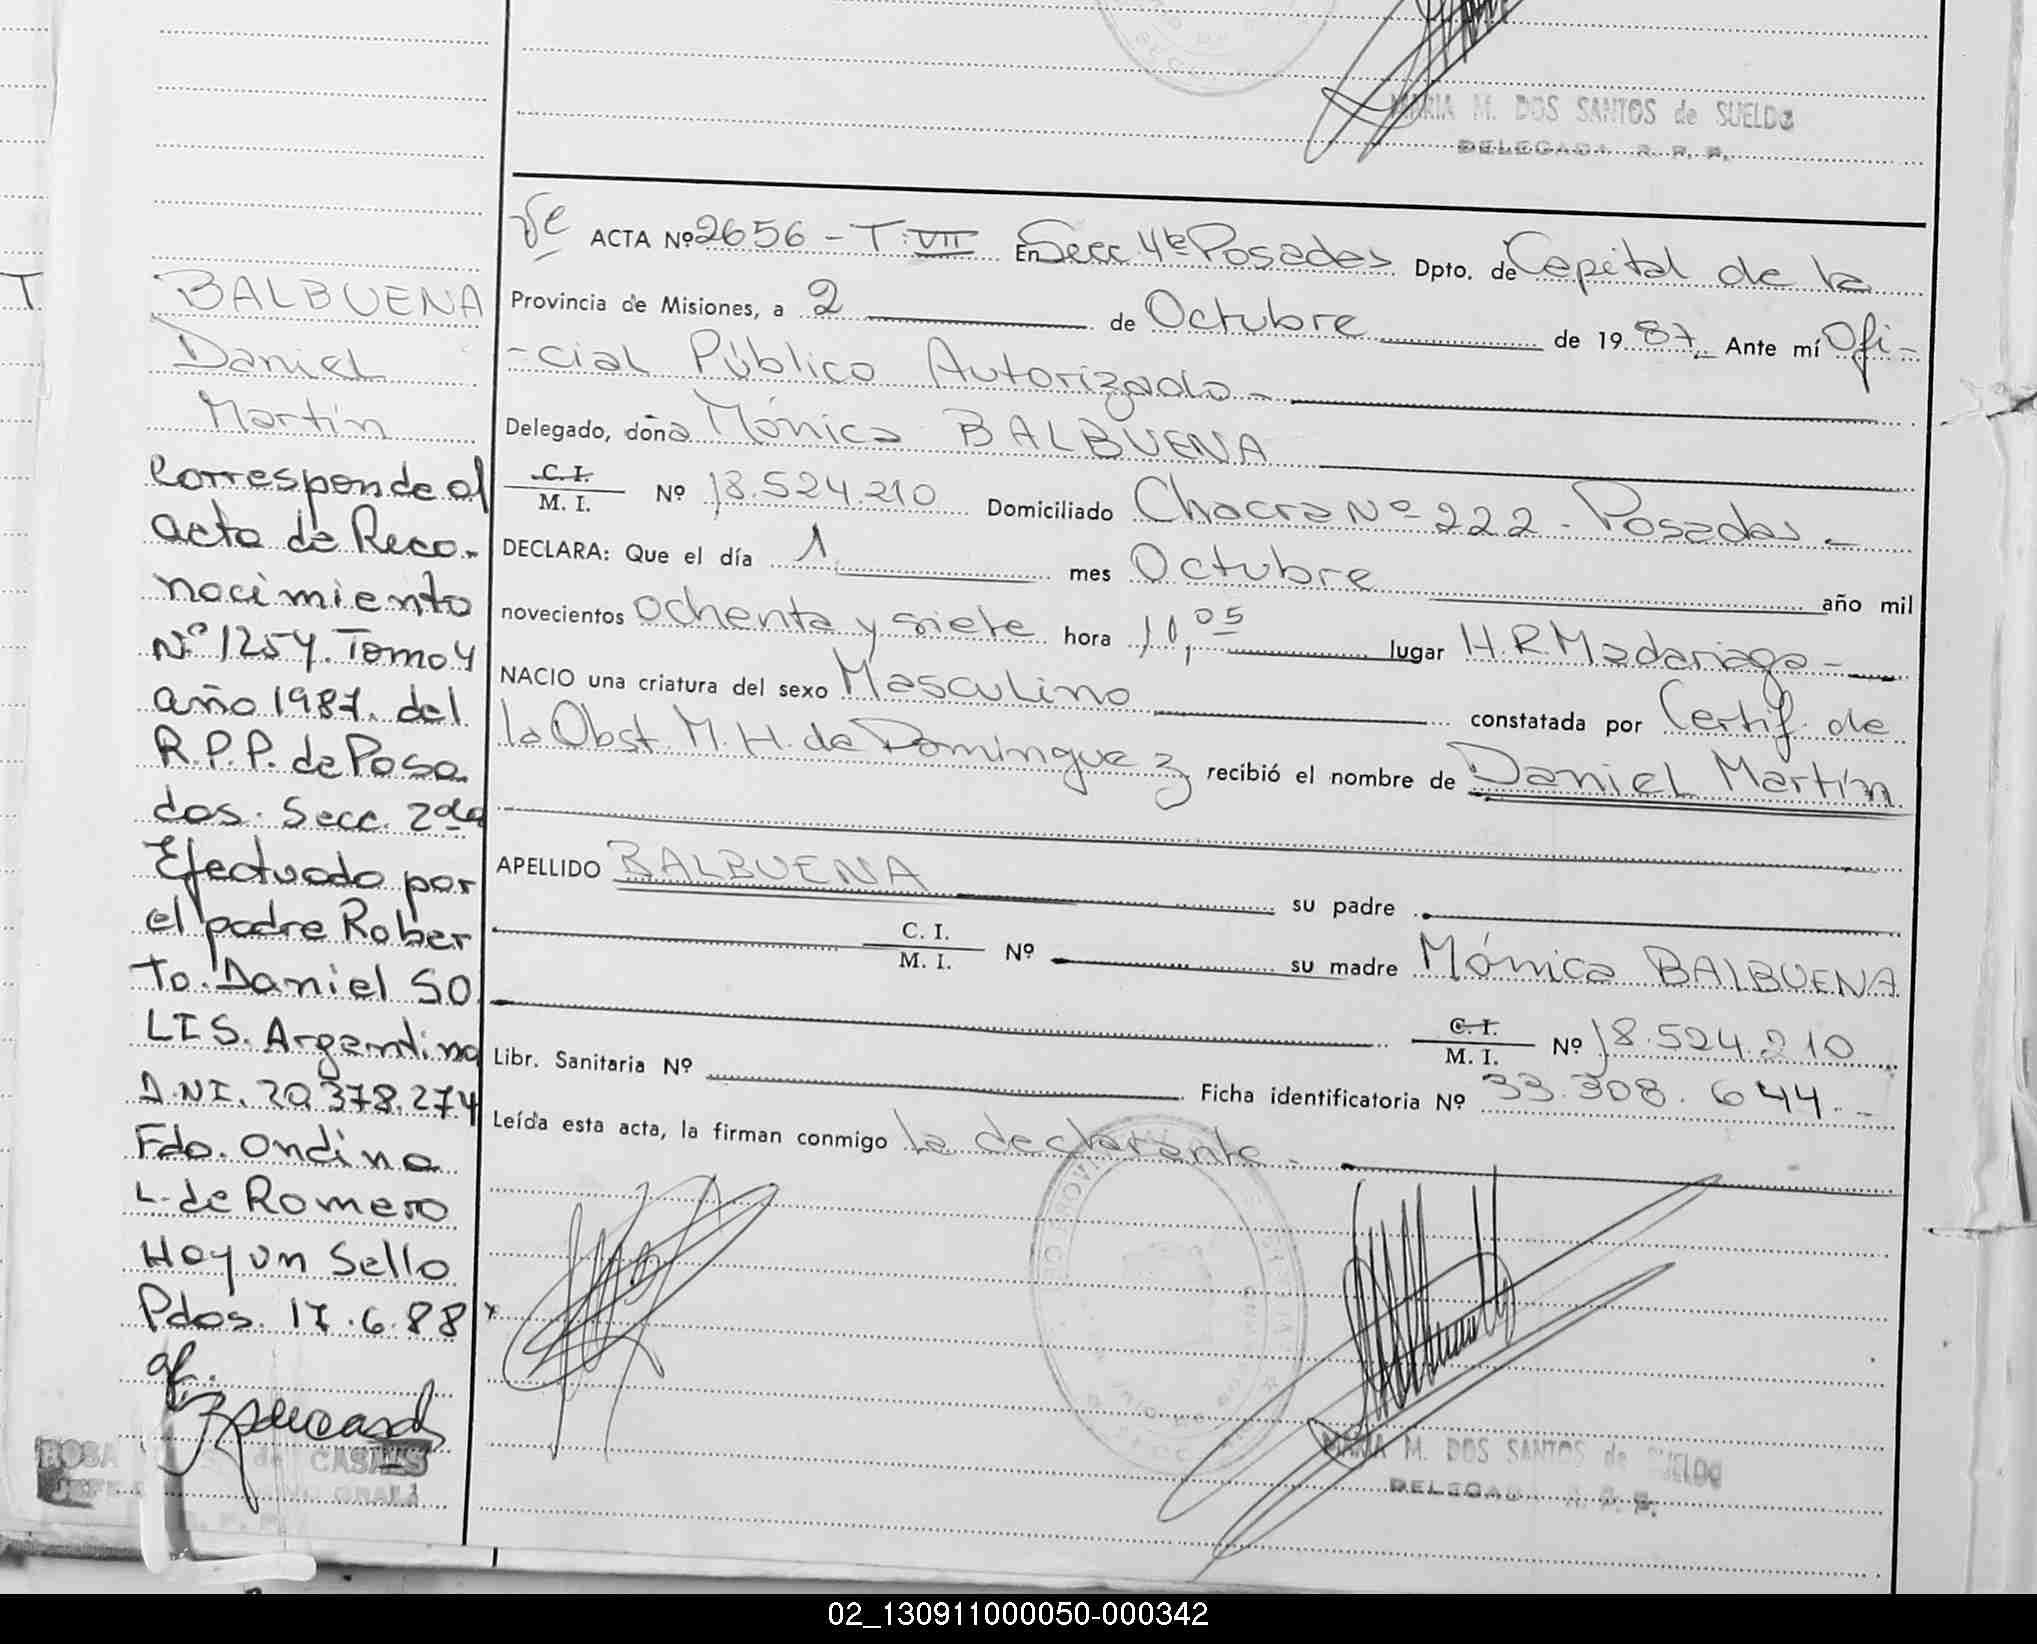 MARIA M. DOS SANTOS de SUELDO
DELEGADA R. P. P.
T
BALBUENA
Daniel
Martín
Corresponde al
acta de Reco-
nocimiento
Nº 1254. Tomo 4
año 1987. del
R.P.P. de Posa
das. Secc. 2da
Efectuado por
el padre Rober
To. Daniel SO
LIS. Argentino
D.N.I. 20.378.274
Fdo. Ondina
L. de Romero
Hay un Sello
Pdas. 17.6.88
ROSA de CASALS
ACTA Nº 2656 - T. VII En Secc. 4ta Posadas Dpto. de Capital de la
Provincia de Misiones, a 2 de Octubre de 1987 Ante mí Ofi-
-cial Público Autorizado -
Delegado, doña Mónica BALBUENA
C. I.
M. I. Nº 18.524.210 Domiciliado Chacra Nº 222 - Posadas -
DECLARA: Que el día 1 mes Octubre año mil
novecientos ochenta y siete hora 11,05 lugar H.R. Madariaga -
NACIO una criatura del sexo Masculino constatada por Certif. de
la Obst. M. H. de Domínguez recibió el nombre de Daniel Martín
APELLIDO BALBUENA su padre
C. I.
M. I. Nº su madre Mónica BALBUENA
C. I.
M. I. Nº 18.524.210
Libr. Sanitaria Nº Ficha identificatoria Nº 33.308.644.-
Leída esta acta, la firman conmigo la declarante -
MARIA M. DOS SANTOS de SUELDO
DELEGADA R. P. P.
02_130911000050-000342